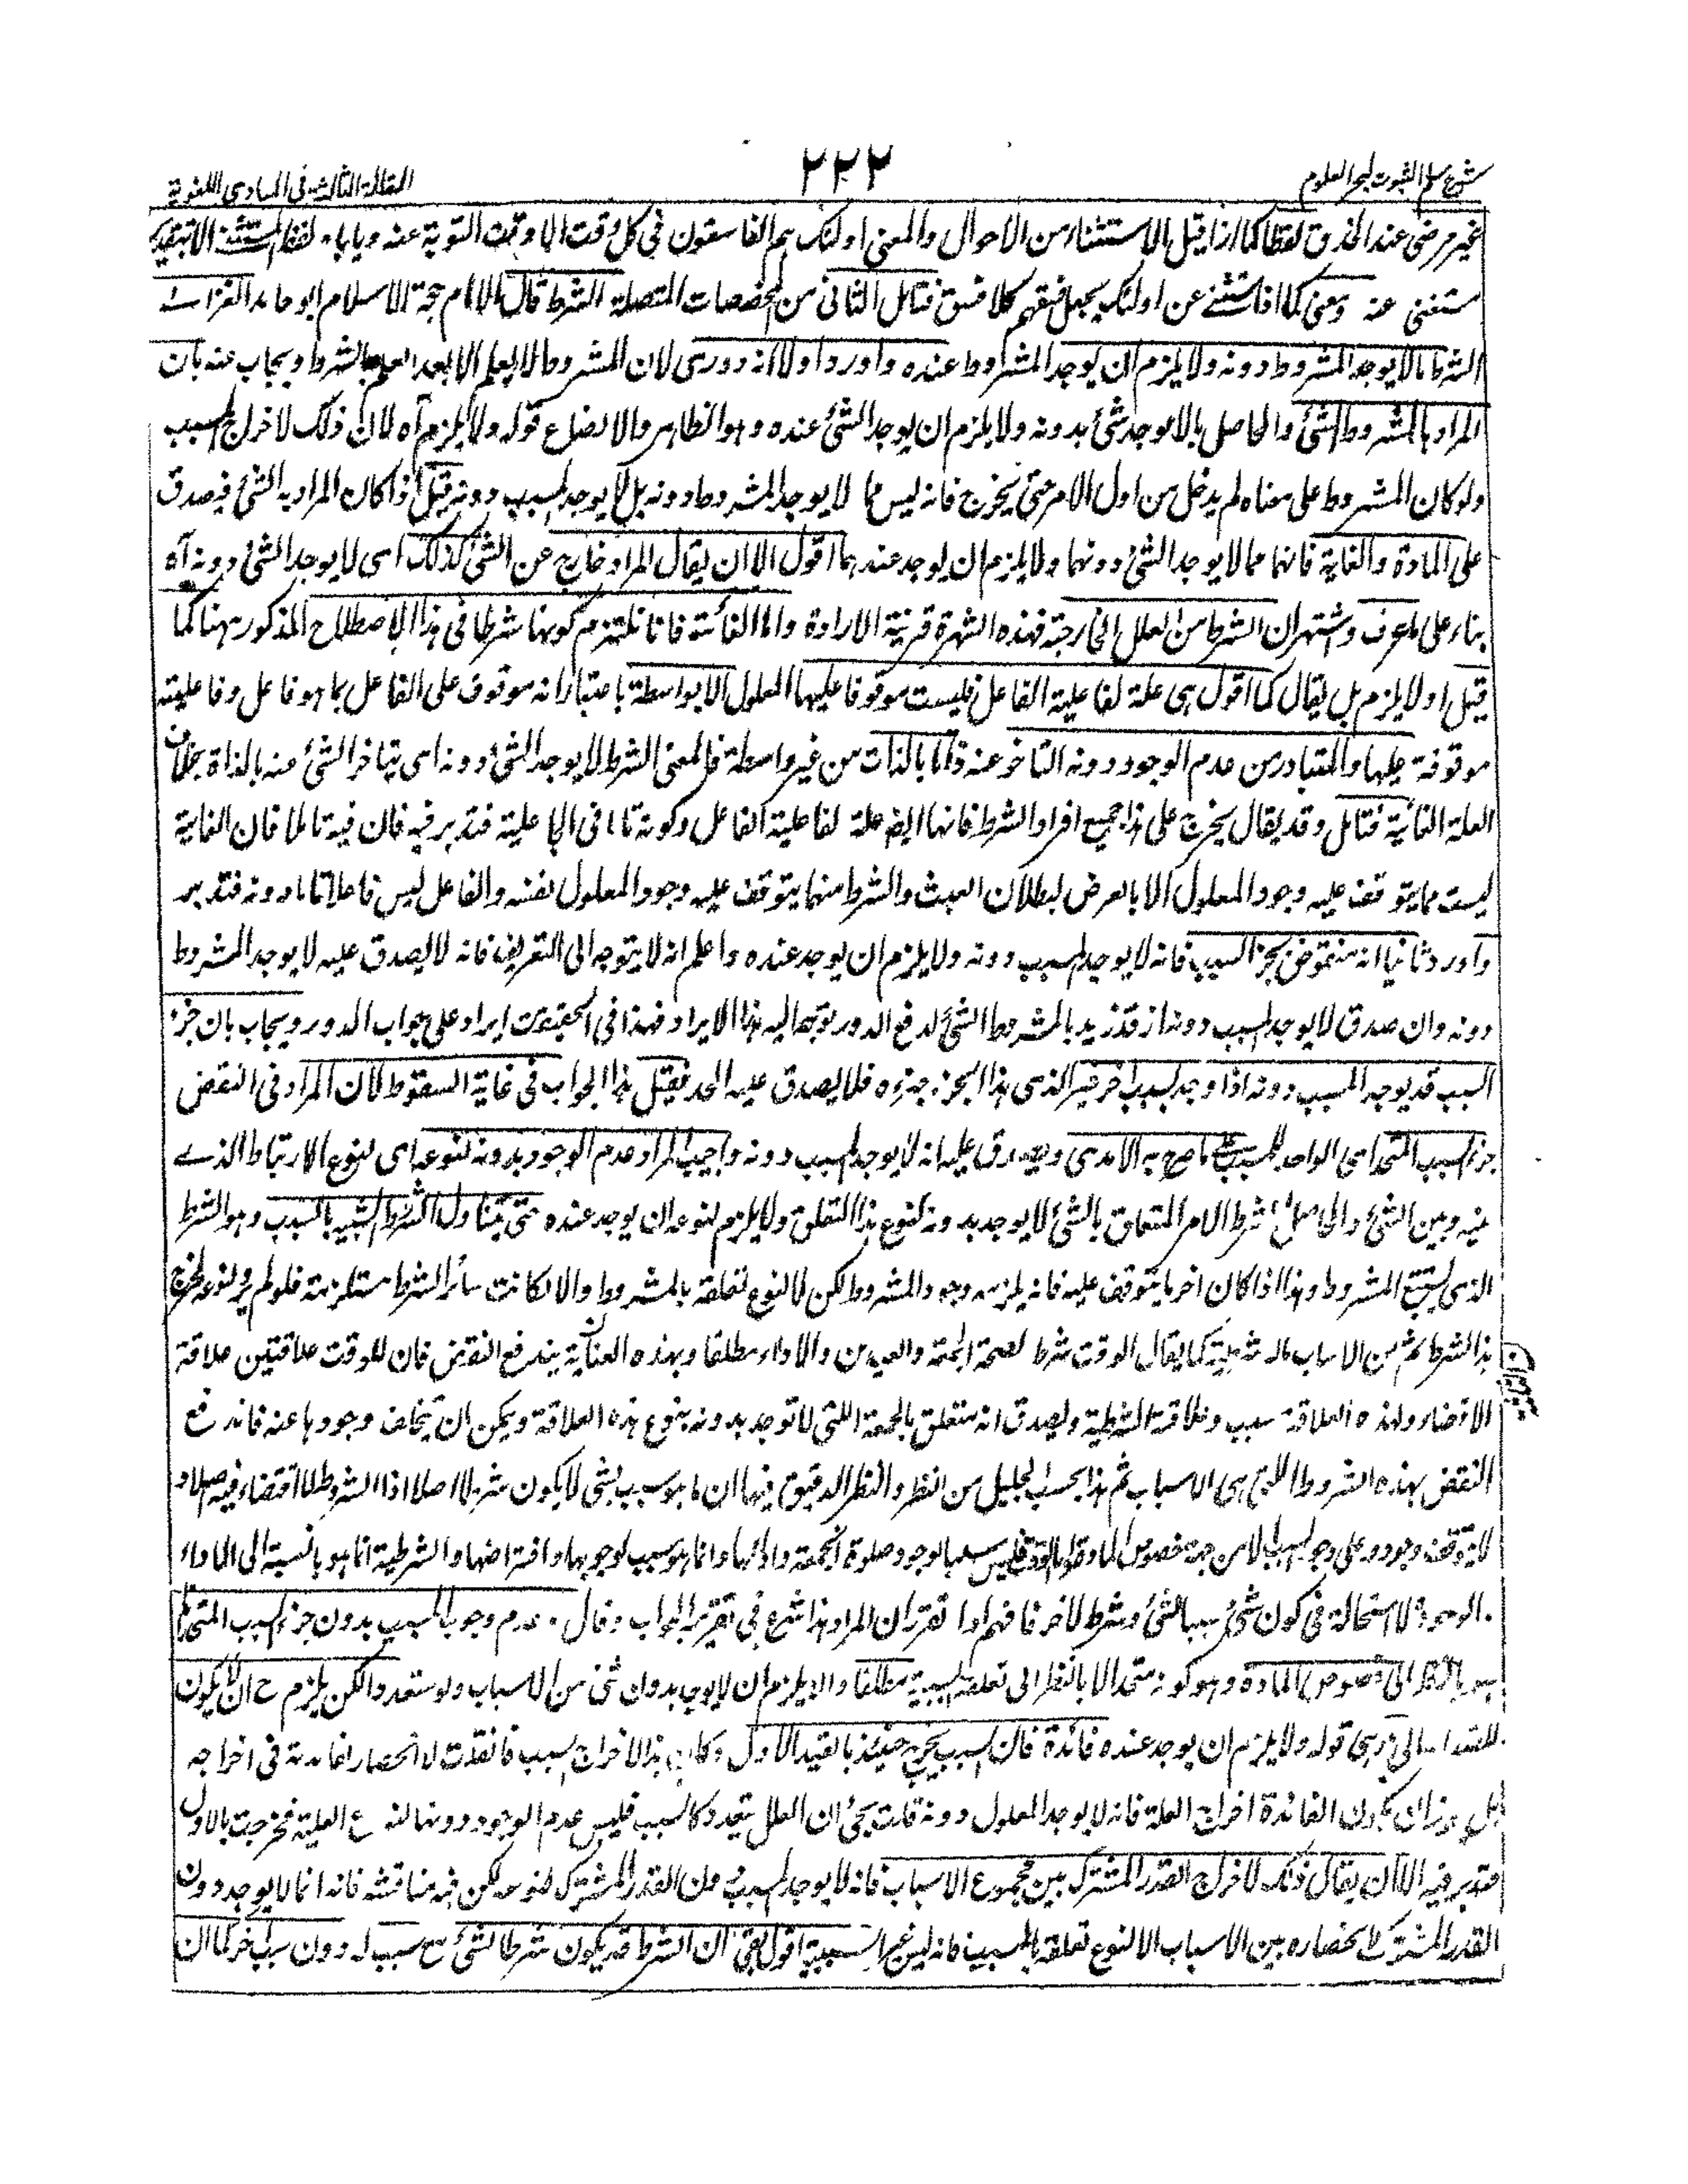 شرح مسلم الثبوت لبحر العلوم
٢٢٢
المقالة الثالثة فی المبادی اللغویة
غیر مرضی عند الحذق لفظا کما اذا قیل الاستثناء من الاحوال والمعنی اولئک هم الفاسقون فی کل وقت الا وقت التوبة عنه ویاباه لفظ المستثنی الا بتقدیر
مستغنی عنه ومعنی کما اذا استثنے عن اولئک یجعل فسقهم کلا فسق فتامل الثانی من المخصصات المتصلة الشرط قال الامام حجة الاسلام ابو حامد الغزالے
الشرط ما لا یوجد المشروط دونه ولا یلزم ان یوجد المشروط عنده واورد اولا انه دوری لان المشروط لا یعلم الا بعد العلم بالشرط ویجاب عنه بان
المراد بالمشروط الشئ والحاصل ما لا یوجد شئ بدونه ولا یلزم ان یوجد الشئ عنده وهو الظاهر والا لضاع قوله ولا یلزم آه لان ذلک لاخراج السبب
ولو کان المشروط علی معناه لم یدخل من اول الامر حتی یخرج فانه لیس مما لا یوجد المشروط دونه بل لا یوجد المسبب دونه قیل اذا کان المراد به الشئ فیصدق
علی المادة والغایة فانهما مما لا یوجد الشئ دونهما ولا یلزم ان یوجد عندهما اقول الا ان یقال المراد خارج عن الشئ کذلک ای لا یوجد الشئ دونه آه
بناء علی ما عرف واشتهر ان الشرط من العلل الخارجة فهذه الشهرة قرینة الارادة واما الغائیة فانا نلتزم کونها شرطا فی هذا الاصطلاح المذکور ههنا کما
قیل او لا یلزم بل یقال کما اقول هی علة لفاعلیة الفاعل فلیست موقوفا علیها المعلول الا بواسطة باعتبار انه موقوف علی الفاعل بما هو فاعل وفاعلیته
موقوفة علیها والمتبادر من عدم الوجود دونه التاخر عنه ذاتا بالذات من غیر واسطة فالمعنی الشرط لا یوجد الشئ دونه ای یتاخر الشئ عنه بالذات بخلاف
العلة الغائیة فتامل وقد یقال یخرج علی هذا جمیع افراد الشرط فانها ایضا علة لفاعلیة الفاعل وکونه تاما فی الجاعلیة فتدبر فیه فان فیه تاملا فان الغایة
لیست مما یتوقف علیه وجود المعلول الا بالعرض لبطلان العبث والشرط منهما یتوقف علیه وجود المعلول نفسه والفاعل لیس فاعلا تاما دونه فتدبر
واورد ثانیا انه منقوض بجزء السبب فانه لا یوجد المسبب دونه ولا یلزم ان یوجد عنده واعلم انه لا یتوجه الی التعریف فانه لا یصدق علیه لا یوجد المشروط
دونه وان صدق لا یوجد المسبب دونه اذ قد زید بالمشروط الشئ لدفع الدور توجه الیه هذا الایراد فهذا فی الحقیقت ایراد علی جواب الدور ویجاب بان جزء
السبب قد یوجد المسبب دونه اذا وجد بسبب آخر غیر الذی هذا الجزء جزءه فلا یصدق علیه الحد فقیل هذا الجواب فی غایة السقوط لان المراد فی النقض
جزء السبب المتحد ای الواحد للمسبب کما صرح به الآمدی ویصدق علیه انه لا یوجد المسبب دونه واجیب المراد عدم الوجود بدونه لنوعه ای لنوع الارتباط الذے
بینه وبین الشئ والحاصل شرط الامر المتعلق بالشئ لا یوجد بدونه لنوع هذا التعلق ولا یلزم لنوعه ان یوجد عنده حتی یتناول الشرط الشبیه بالسبب وهو الشرط
الذی یستتبع المشروط وهذا اذا کان آخر ما یتوقف علیه فانه یلزمه وجود المشروط لکن لا لنوع تعلقه بالمشروط والا لکانت سائر الشروط مستلزمة فلو لم یزد لنوعه لخرج
هذا الشرط ثم من الاسباب ما له شرطیة کما یقال الوقت شرط لصحة الجمعة والعیدین والاداء مطلقا وبهذه العنایة یندفع النقض فان للوقت علاقتین علاقة
الافضاء ولهذه العلاقة سبب وعلاقة الشرطیة ویصدق انه متعلق بالجمعة اللتی لا توجد بدونه بنوع هذه العلاقة ویمکن ان یتخلف وجودها عنه فاندفع
النقض بهذه الشروط اللتی هی الاسباب ثم هذا بحسب الجلیل من النظر والنظر الدقیق فیها ان ما هو سبب بشئ لا یکون شرطا اصلا اذا الشروط لا اقتضاء فیه اصلا و
لا یتوقف وجوده علی وجود السبب الا من جهة خصوص المادة والوقت لیس سببا لوجود صلوة الجمعة وادائها وانما هو سبب لوجوبها وافتراضها والشرطیة انما هو بالنسبة الی الاداء
والوجود ولا استحالة فی کون شئ سببا لشئ وشرطا لآخر فافهم اذا تقرر ان المراد هذا شرع فی تقریر الجواب وقال عدم وجود المسبب بدون جزء السبب المتحد انما
هو بالنظر الی خصوص المادة وهو کونه متحدا لا بالنظر الی تعلقه السببیة مطلقا والا یلزم ان لا یوجد بدون شئ من الاسباب ولو متعددا لکن یلزم ح ان لا یکون
للقید الثانی ای قوله ولا یلزم ان یوجد عنده فائدة فان السبب یخرج حینئذ بالقید الاول وکان هذا الاخراج السبب فان قلت لا انحصار لفائدته فی اخراجه
بل یجوز ان یکون الفائدة اخراج العلة فانه لا یوجد المعلول دونه قلت یجئ ان العلل یتعدد کالسبب فلیس عدم الوجود دونها لنوع العلیة فخرجت بالاول
فتدبر فیه الا ان یقال ذلک لاخراج القدر المشترک بین مجموع الاسباب فانه لا یوجد المسبب دون القدر المشترک لنوعه لکن فیه مناقشة فانه انما لا یوجد دون
القدر المشترک لانحصاره بین الاسباب لا لنوع تعلقه بالمسبب فانه لیس غیر السببیة اقول بقی ان الشرط قد یکون شرطا لشئ مع سبب له دون سبب آخر کما ان